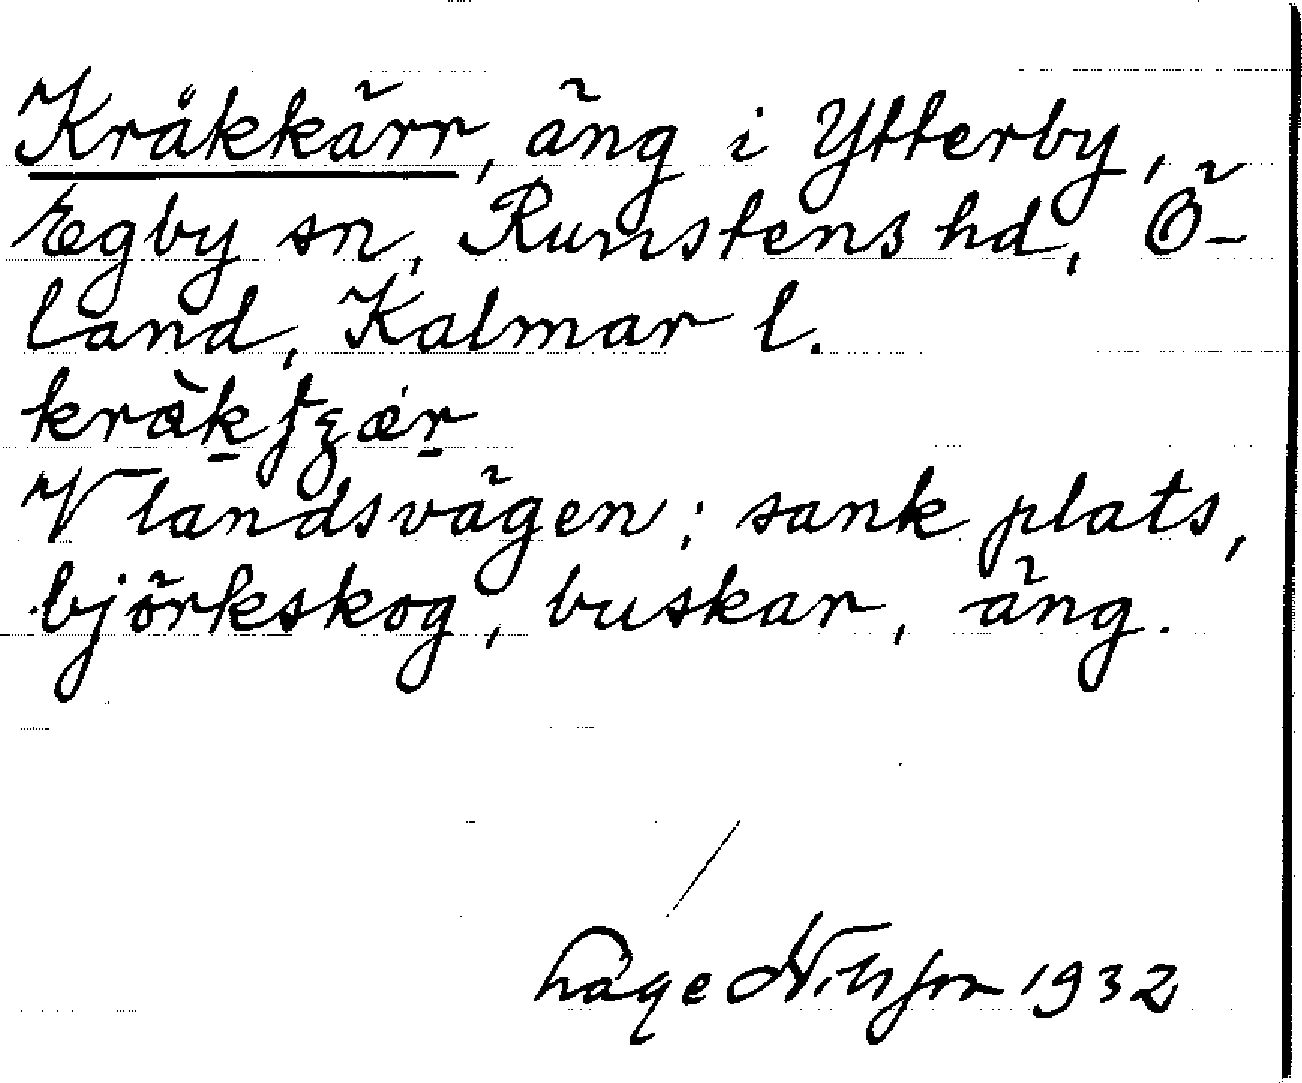 Kråkkärr, äng i Ytterby,
Egby sn, Runstens hd, Ö-
land, Kalmar l.
V landsvägen; sank plats,
björkskog, buskar, äng.
Låge Nilsson 1932